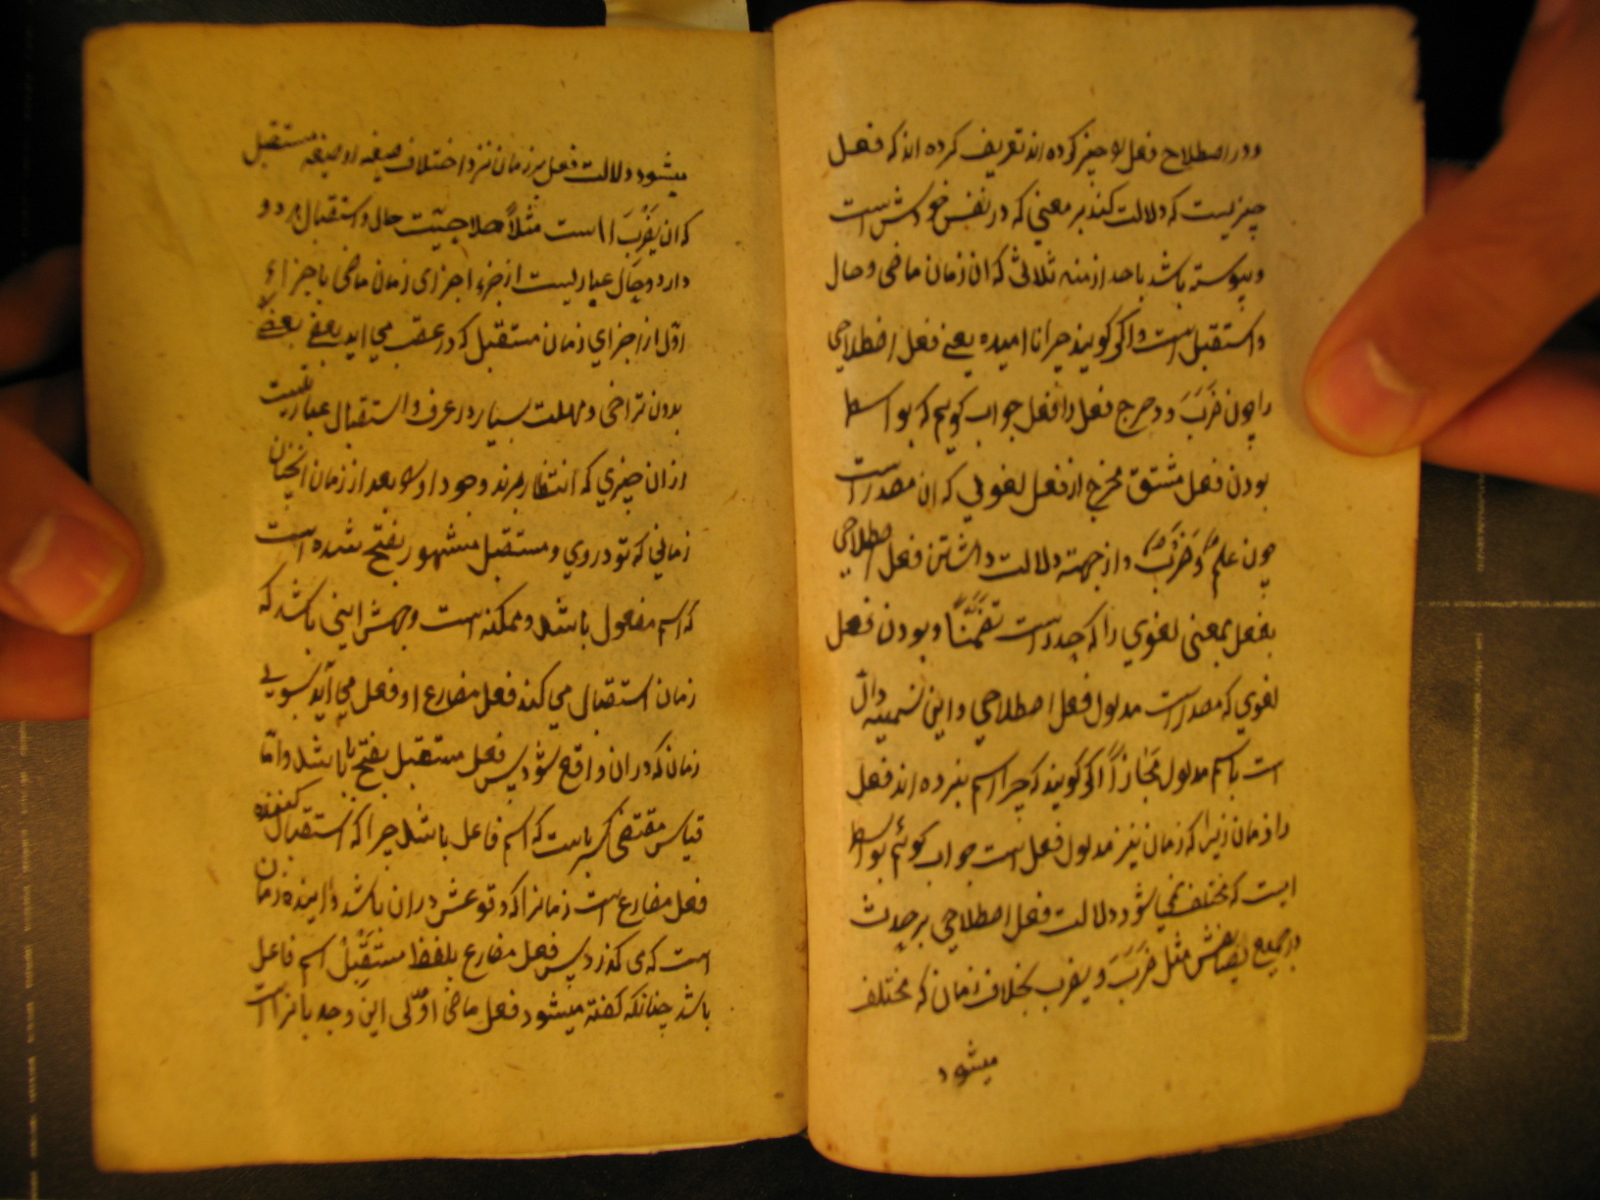 ودر اصطلاح فعل بو چیز کرده اند تعریف کرده اند که فعل
چیزیست که دلالت کند بر معنی که در نفس خودش است
و پیوسته باشد باحد ازمنه ثلاثی که ان زمان ماضی و حال
و استقبل است و اکر کویند چرا نامیده یعنی فعل اصطلاحی
را چون ضَرَبَ و دحرج فعل را فعل جواب کویم که بواسط
بودن فعل مشتق مخرج از فعل لغوی که ان مصدر است
چون علم و ضرب و از جهته دلالت داشتن فعل اصطلاحی
بفعل بمعنی لغوی را که حدث است تضمّناً و بودن فعل
لغوی که مصدر است مدلول فعل اصطلاحی و این تسمیه دالّ
است باسم مدلول مَجازاً اکر کویند که چرا اسم نبرده اند فعل
را زمان زیرا که زمان نیز مدلول فعل است جواب کوئیم بواسط
اینست که مختلف نمیاشود دلالت فعل اصطلاحی بر حدث
در جمیع مثل ضَرَبَ و یضرب بخلاف زمان که مختلف
میشود
میشود دلالت فعل بر زمان نزد اختلاف صیغه او صیغه مستقبل
که ان یَضْرِبُ است مثلاً صلاحیّت حال و استقبال هر دو
دارد و حال عبارلیست از جزء اجزای زمان ماضی با جزاء
اوّل از اجزای زمان مستقبل که در عقب می اید بعضی بعضی
بدون تراخی و مهلت بسیار در عرف و استقبال عبارتیست
از ان چیزی که انتظار برند وجود او را بعد از زمان انچنان
زمانی که تو دروی و مستقبل مشهور بفتح شده است
که اسم مفعول باشد و ممکنه است وجهش اینی باشد که
زمان استقبال می کند فعل مضارع او فعل می آید بسوی
زمان که در ان واقع شود پس فعل مستقبل بفتح با باشد وامّا
قیاس مقتضی کسر باست که اسم فاعل باشد چرا که استقبال کننده
فعل مضارع است زمانرا که وقوعش دران باشد و اینده زمان
است که می کذرد پس فعل مضارع بلفظ مستقبِلْ اسم فاعل
باشد چنانکه کفته میشود فعل ماضی اوّلی این وجه بانراست